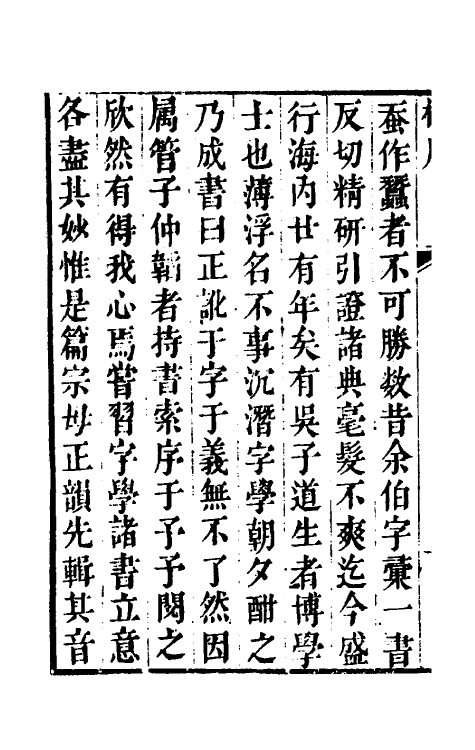 蚕作蠶者不可勝数昔余伯字彙一書
反切精研引證諸典毫髮不爽迄今盛
行海内廿有年矣有吳子道生者博學
士也薄浮名不事沉潛字學朝夕酣之
乃成書曰正訛于字于義無不了然因
属管子仲韜者持書索序于予予閱之
欣然有得我心焉嘗習字學諸書立意
各盡其妙惟是篇宗毋正韻先輯其音